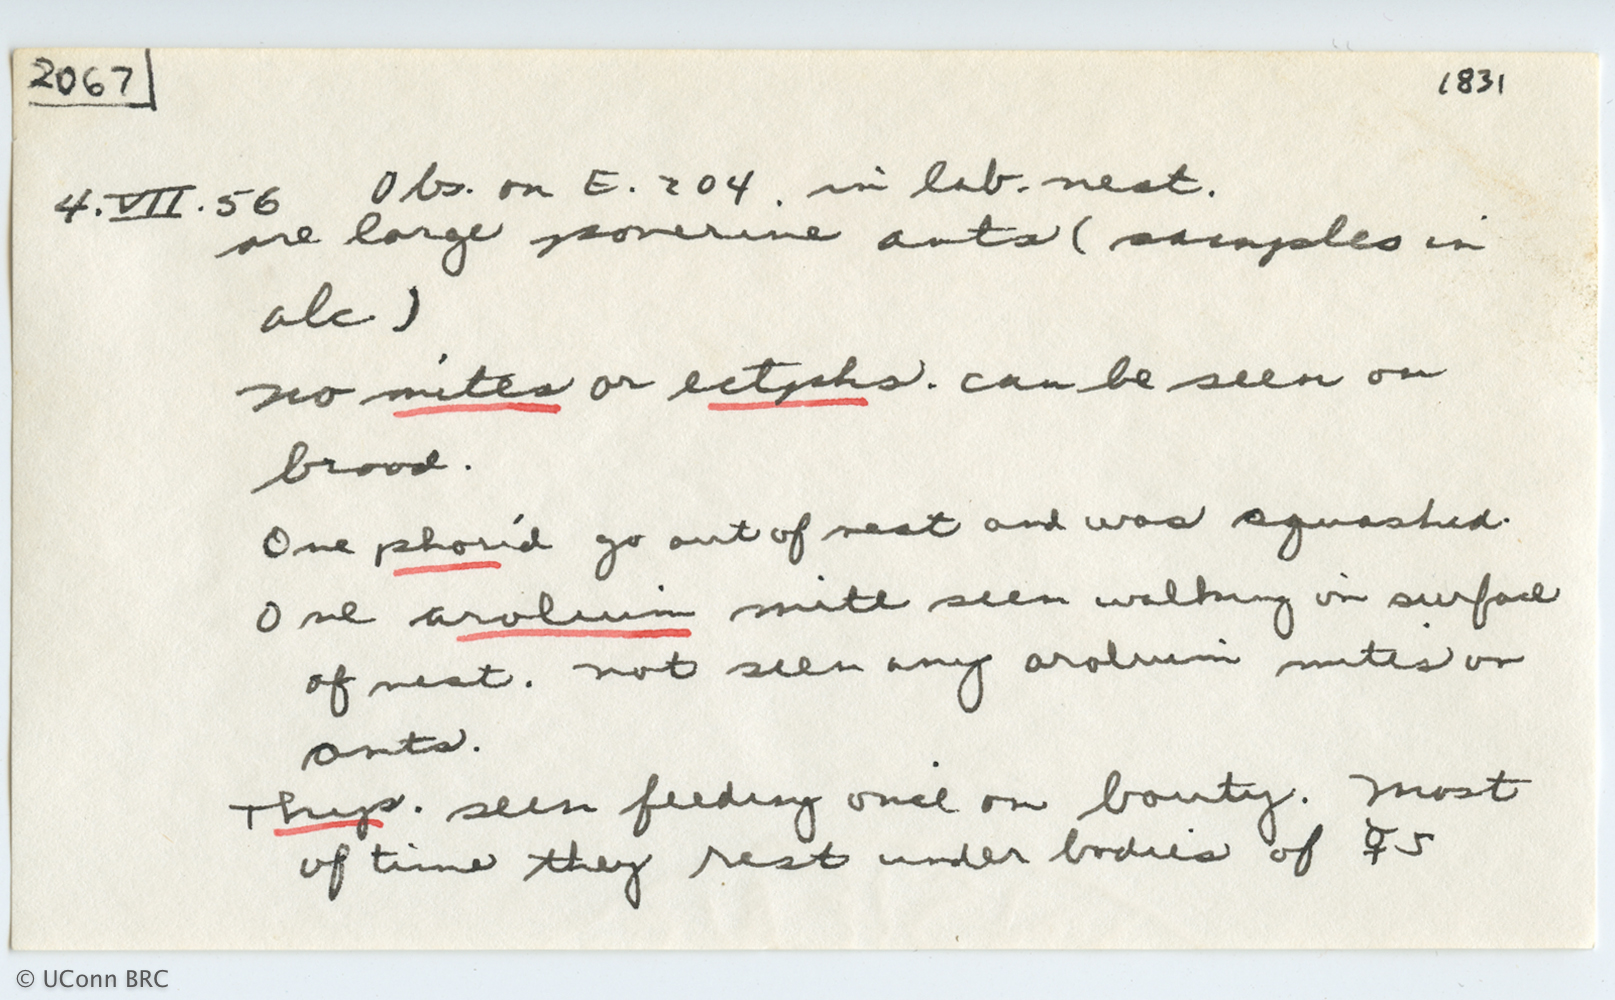 2067
1831
4.VII.56 Obs. on E. 204. in lab. nest.
are large ponerine ants (samples in
alc.)
no mites or ectphs. can be seen on
brood.
One phorid go out of nest and was squashed.
One aroluim mite seen walking on surface
of nest. not seen any aroluim mites on
ants.
Thryp. seen feeding once on bouty. Most
of time they rest under bodies of ☿s
© UConn BRC